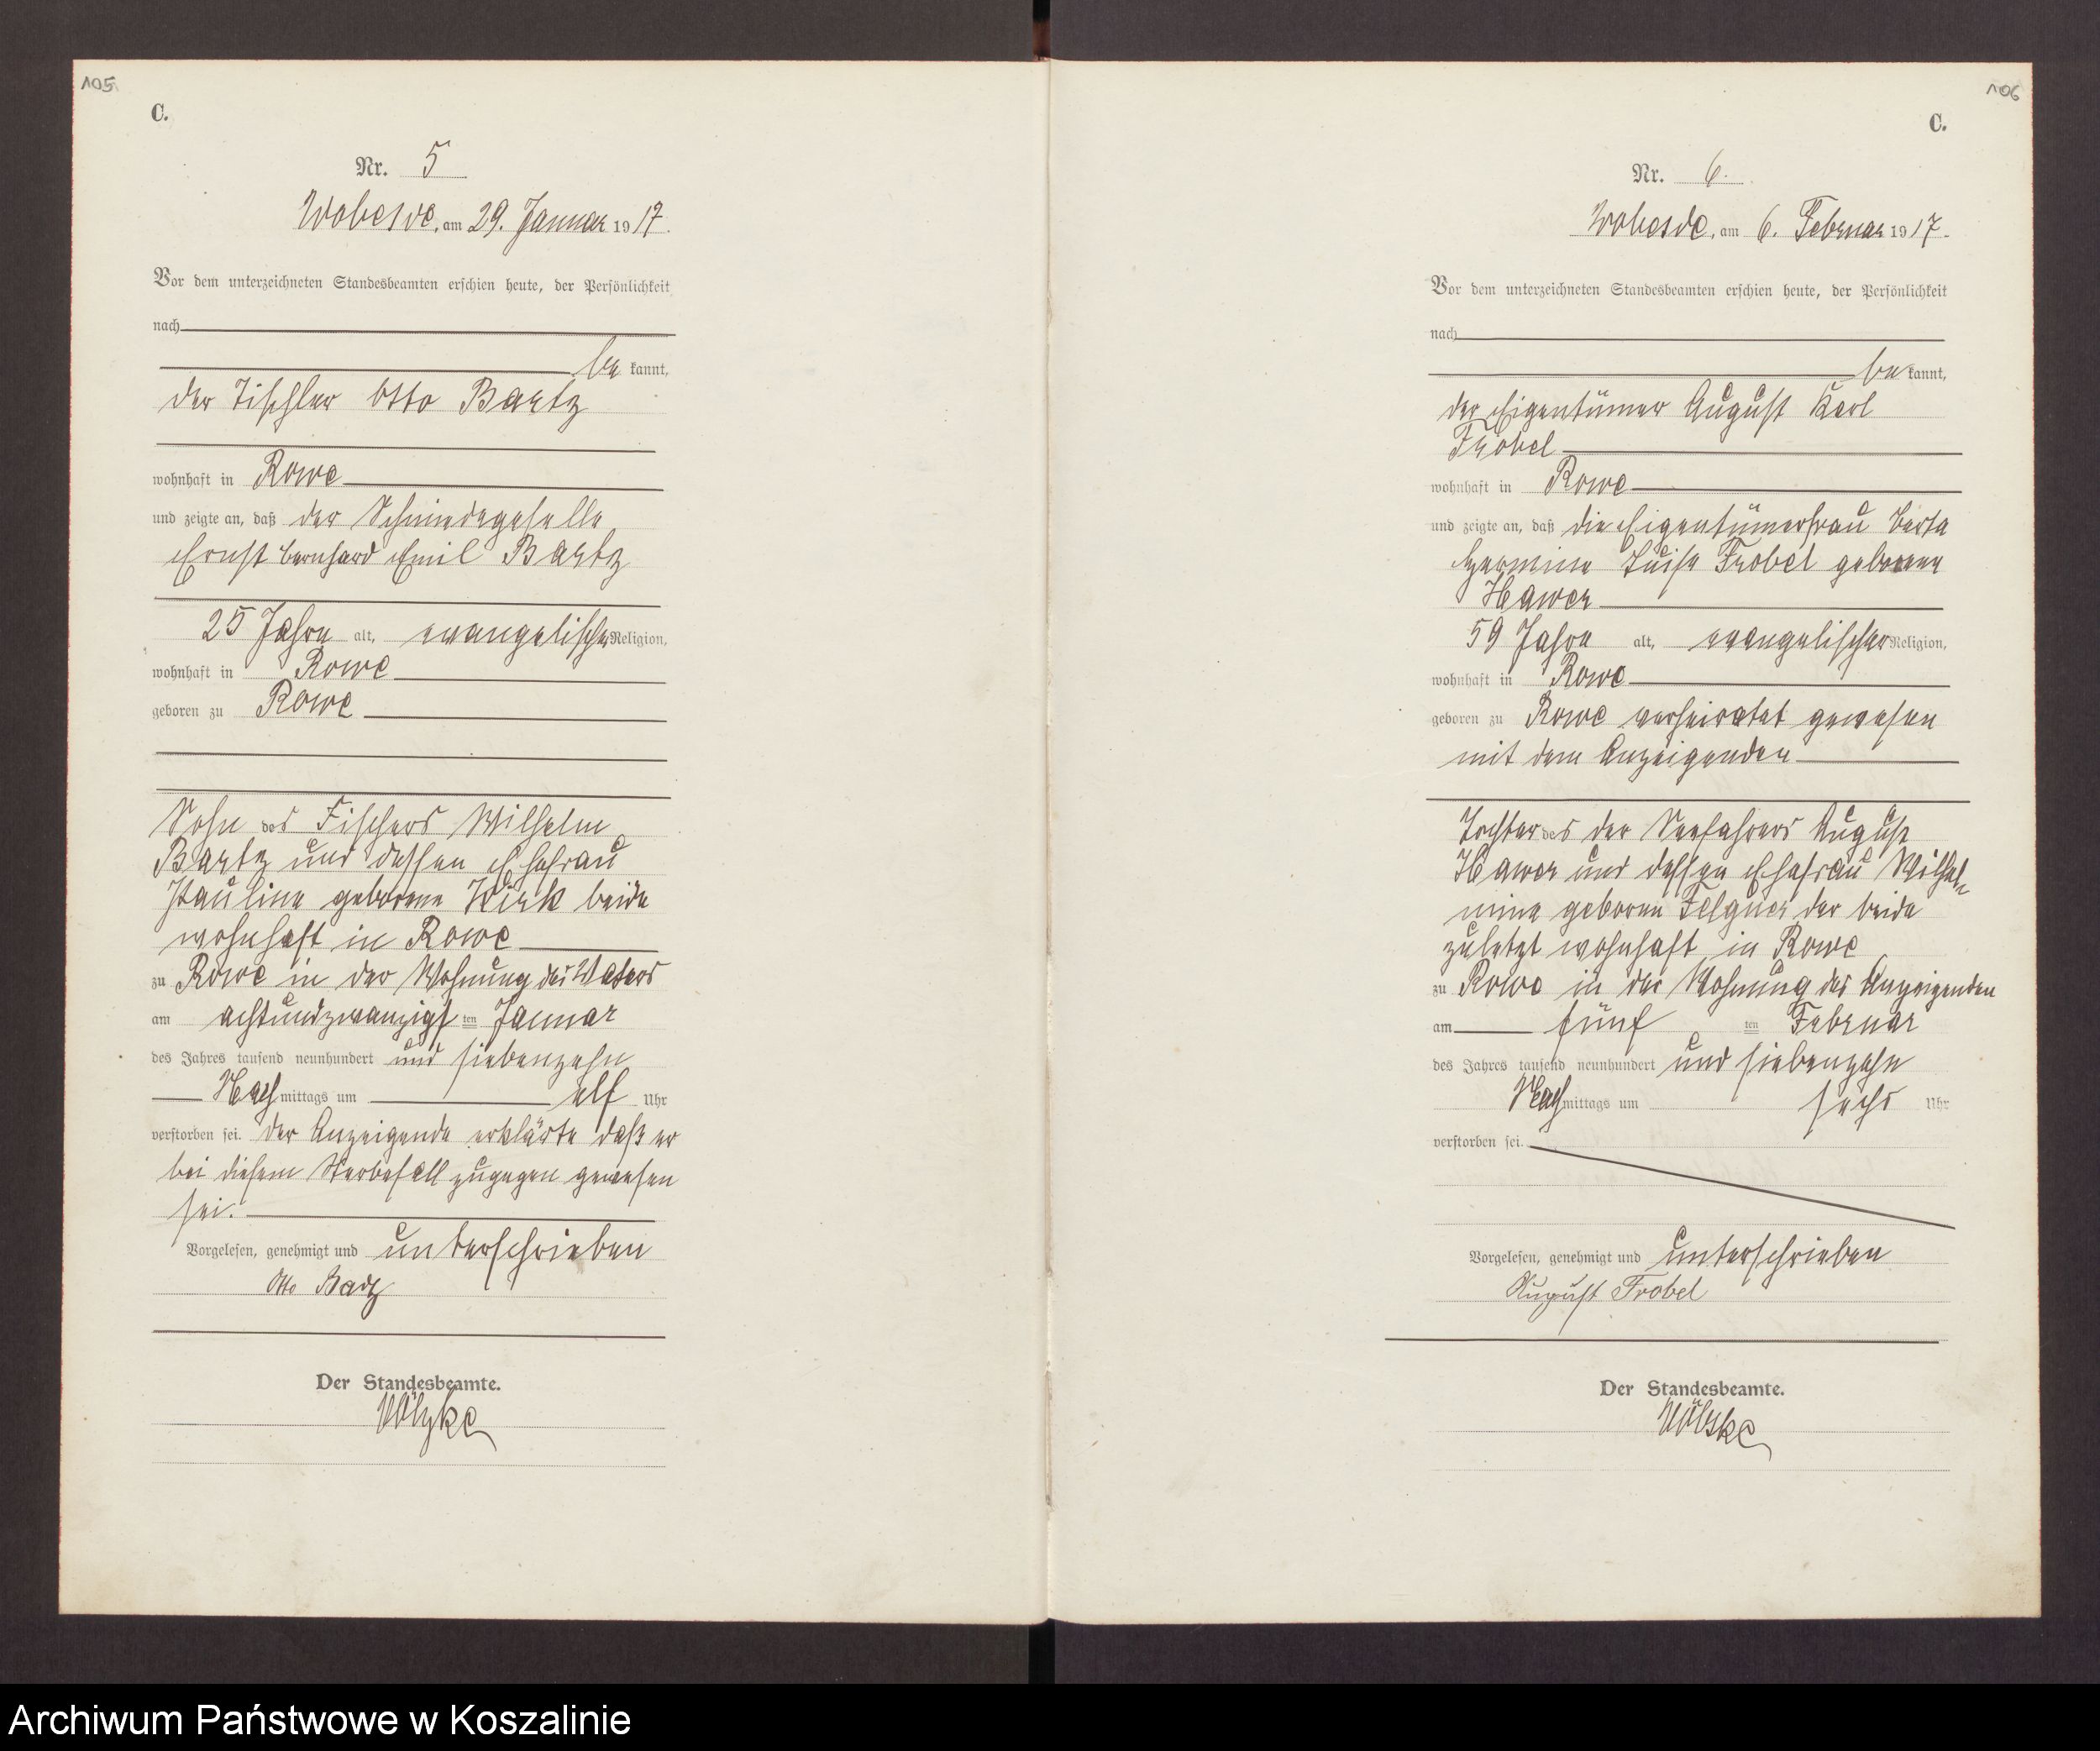 105
C.
Nr. 5
Wobesde, am 29. Januar 1917.
Vor dem unterzeichneten Standesbeamten erschien heute, der Persönlichkeit
nach
be kannt,
der Tischler Otto Bartz
wohnhaft in Rowe
und zeigte an, daß der Schmiedegeselle
Ernst Bernhard Emil Bartz
25 Jahre alt, evangelischer Religion,
wohnhaft in Rowe
geboren zu Rowe
Sohn des Fischers Wilhelm
Bartz und dessen Ehefrau
Pauline geborene Kirk beide
wohnhaft in Rowe
zu Rowe in der Wohnung des Vaters
am achtundzwanzigsten Januar
des Jahres tausend neunhundert und siebenzehn
Nachmittags um elf Uhr
verstorben sei. Der Anzeigende erklärte daß er
bei diesem Sterbefall zugegen gewesen
sei.
Vorgelesen, genehmigt und unterschrieben
Otto Bartz
Der Standesbeamte.
Völzke
106
C.
Nr. 6.
Wobesde, am 6. Februar 1917.
Vor dem unterzeichneten Standesbeamten erschien heute, der Persönlichkeit
nach
be kannt,
der Eigentümer August Karl
Frobel
wohnhaft in Rowe
und zeigte an, daß die Eigentümerfrau Berta
Hermine Luise Frobel geborene
Hawer
59 Jahre alt, evangelischer Religion,
wohnhaft in Rowe
geboren zu Rowe verheiratet gewesen
mit dem Anzeigenden
Tochter des der Seefahrers August
Hawer und dessen Ehefrau Wilhel
mine geboren Felgner der beide
zuletzt wohnhaft in Rowe
zu Rowe in der Wohnung des Anzeigenden
am fünften Februar
des Jahres tausend neunhundert und siebenzehn
Nachmittags um sechs Uhr
verstorben sei.
Vorgelesen, genehmigt und unterschrieben
August Frobel
Der Standesbeamte.
Völzke
Archiwum Państwowe w Koszalinie